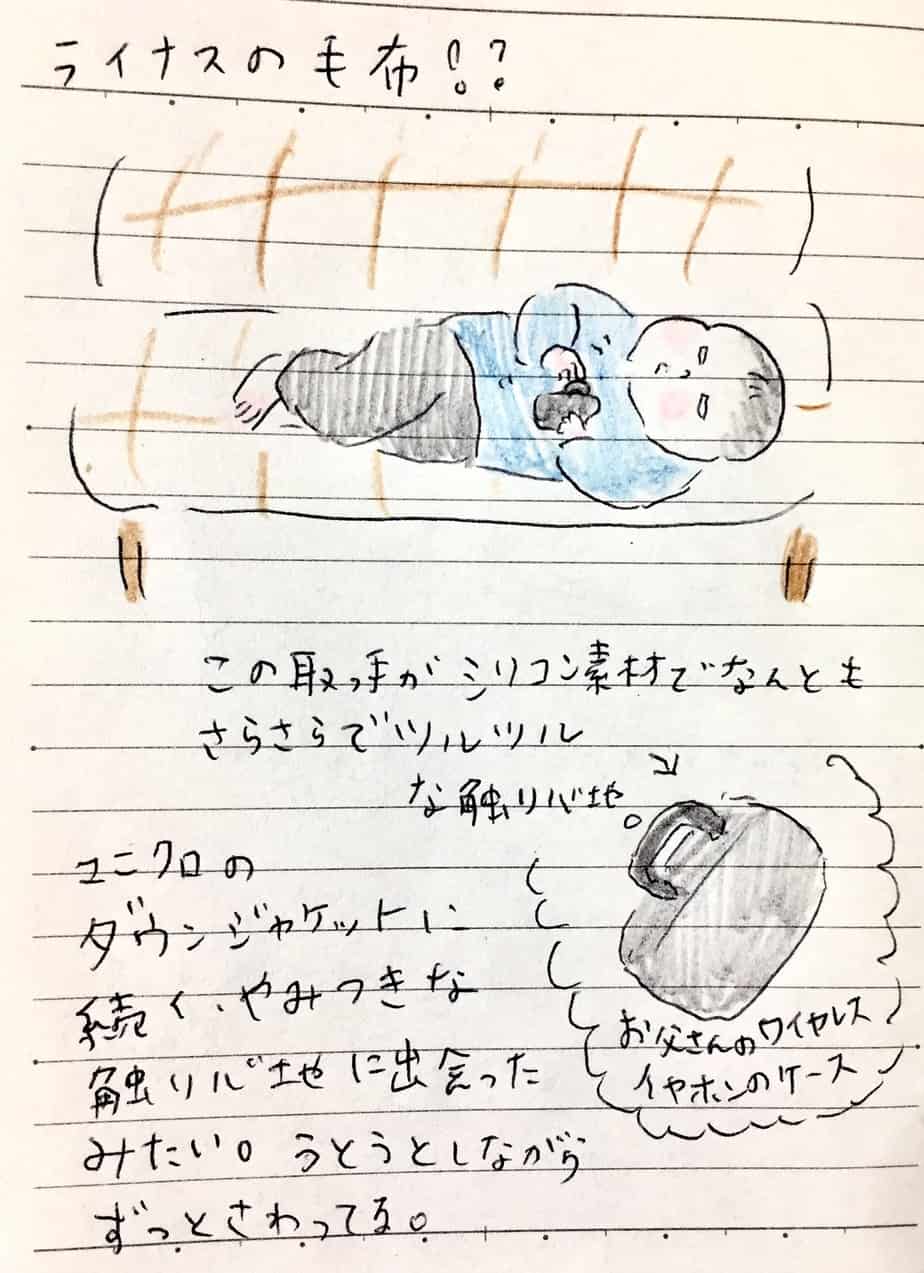 ライナスの毛布!?
この取っ手がシリコン素材でなんとも
さらさらでツルツル
な触りバ地。
ユニクロの
ダウンジャケットに
続く、やみつきな
触りバ地に出会った
みたい。うとうとしながら
ずっとさわってる。
お父さんのワイヤレス
イヤホンのケース